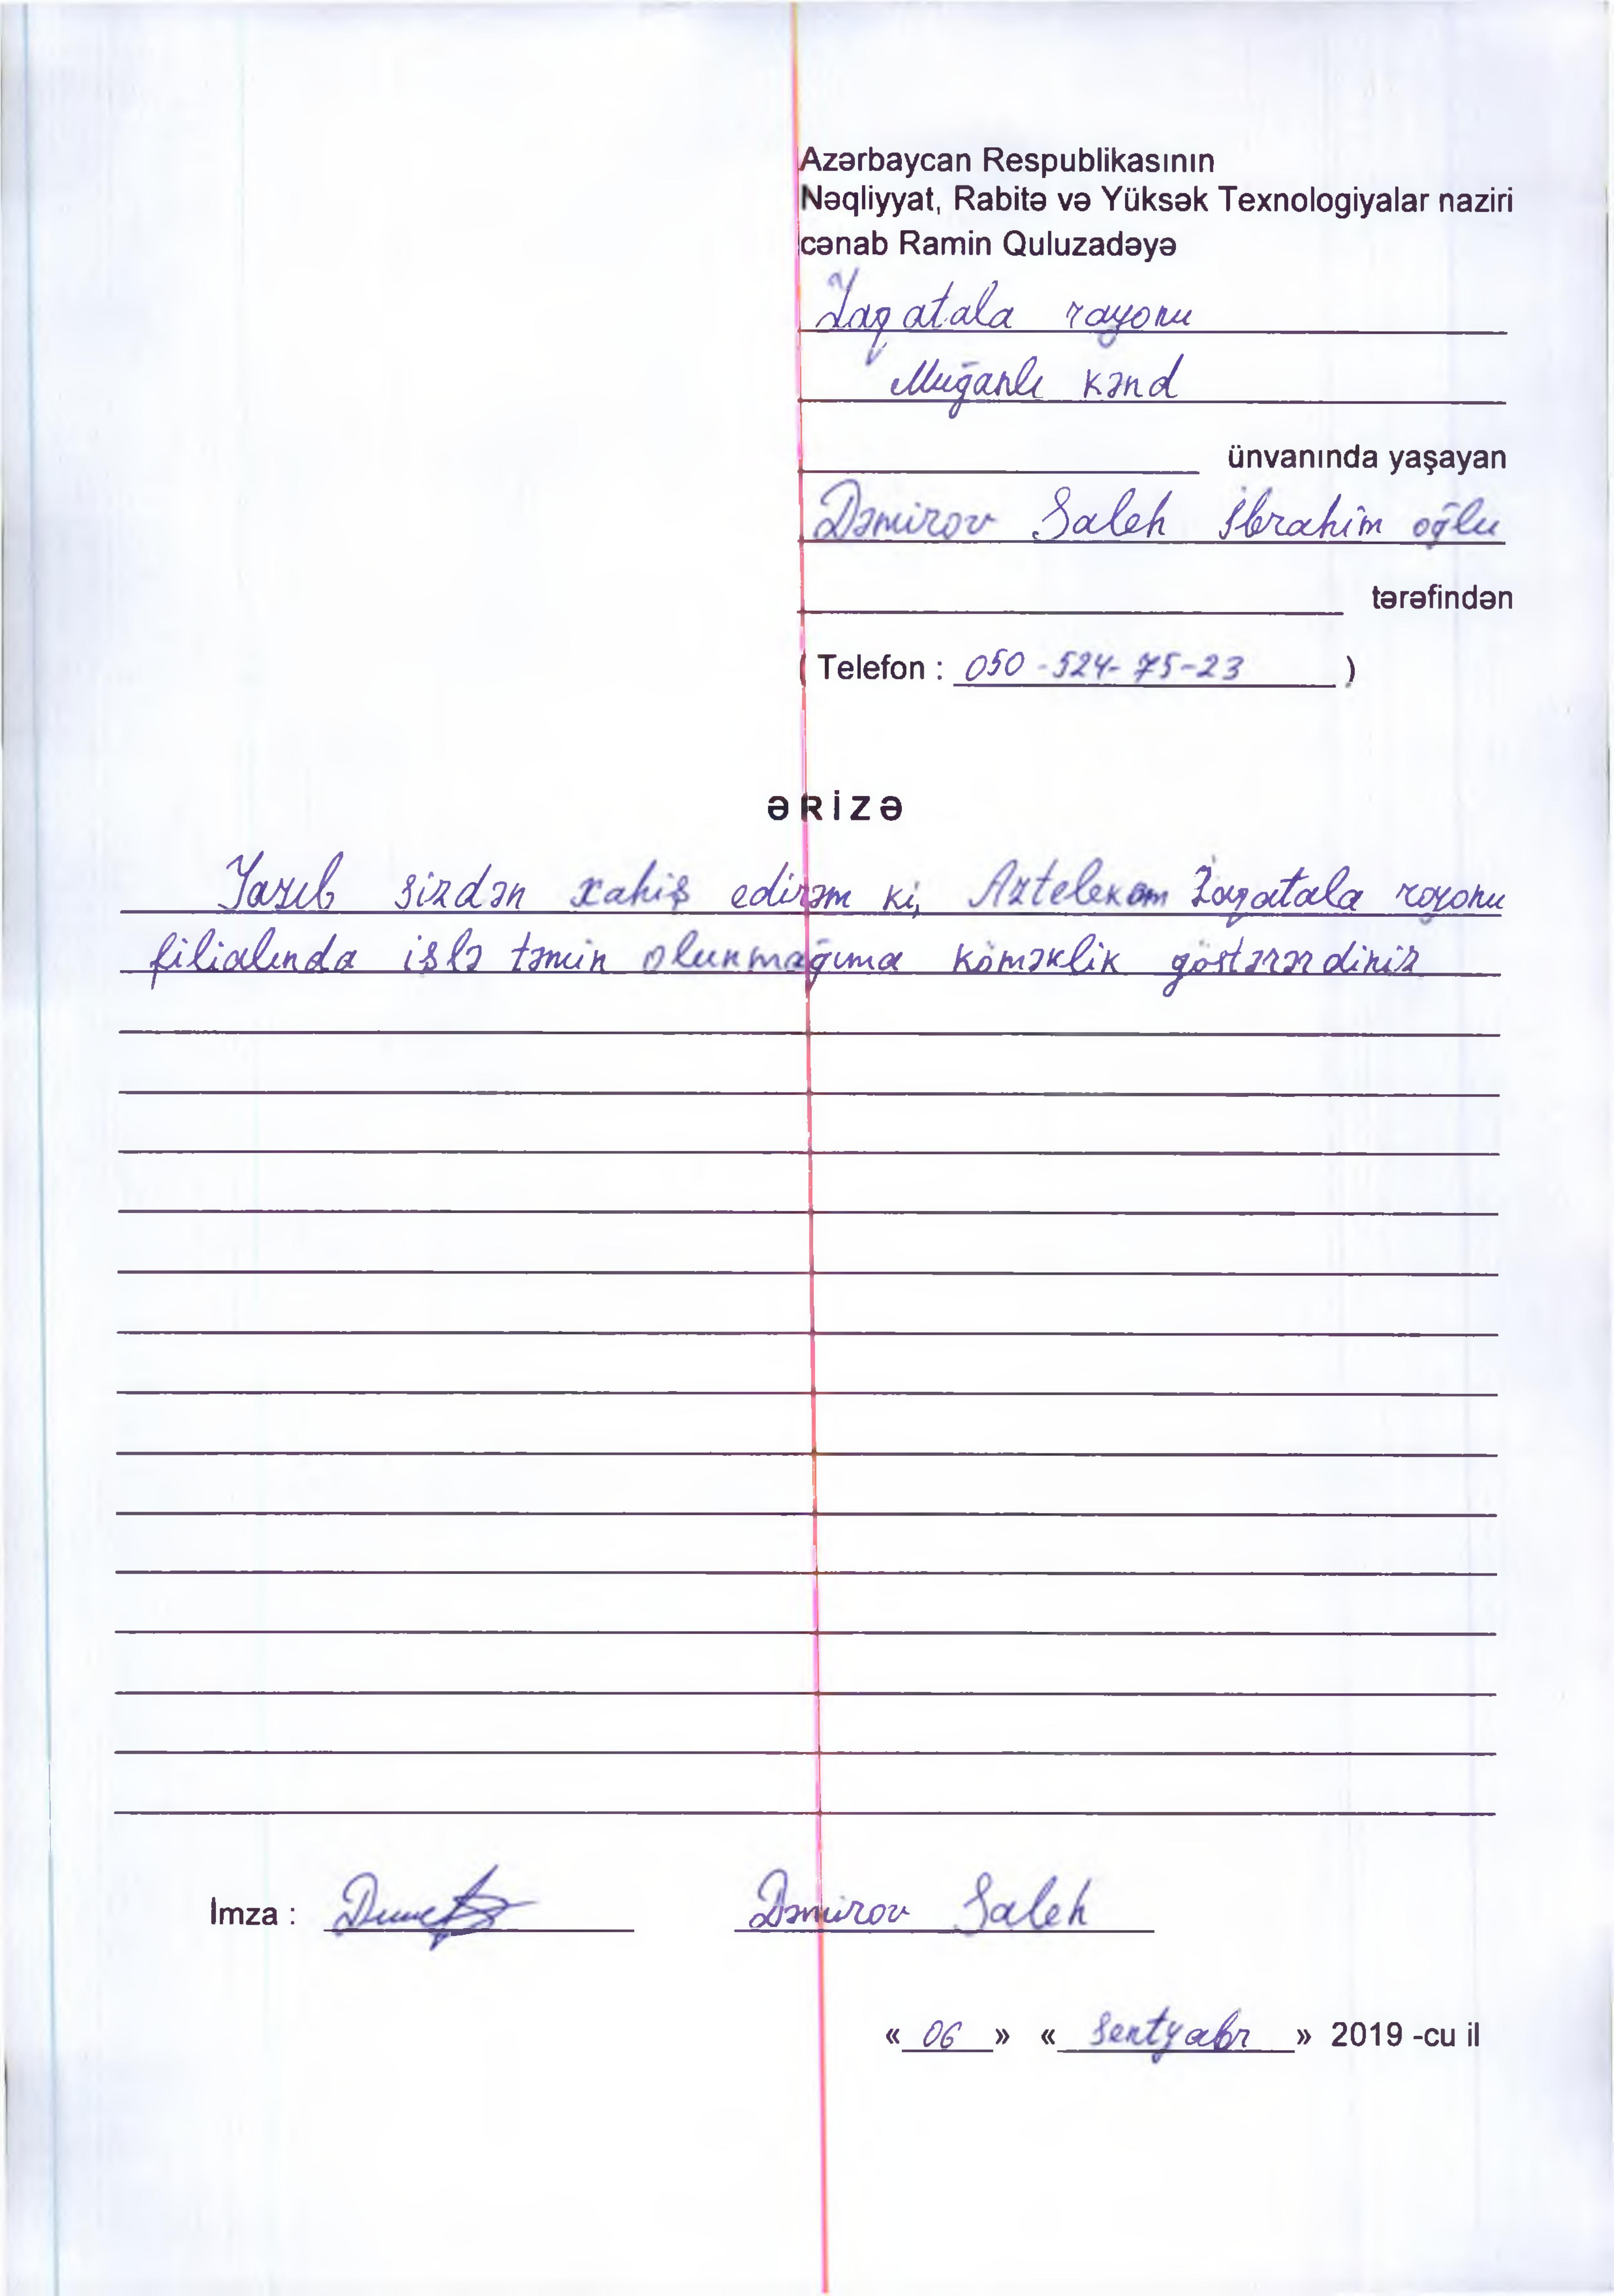 Azərbaycan Respublikasının
Nəqliyyat, Rabitə və Yüksək Texnologiyalar naziri
cənab Ramin Quluzadəyə
Zaqatala rayonu
Muğanlı kənd
ünvanında yaşayan
Dəmirov Saleh İbrahim oğlu
tərəfindən
( Telefon : 050-524-75-23 )
ƏRİZƏ
Yazıb sizdən xahiş edirəm ki, Aztelekom Zaqatala rayonu
filialında işlə təmin olunmağıma köməklik göstərərdiniz
İmza : Dəmirov Saleh
« 06 » « Sentyabr » 2019 -cu il